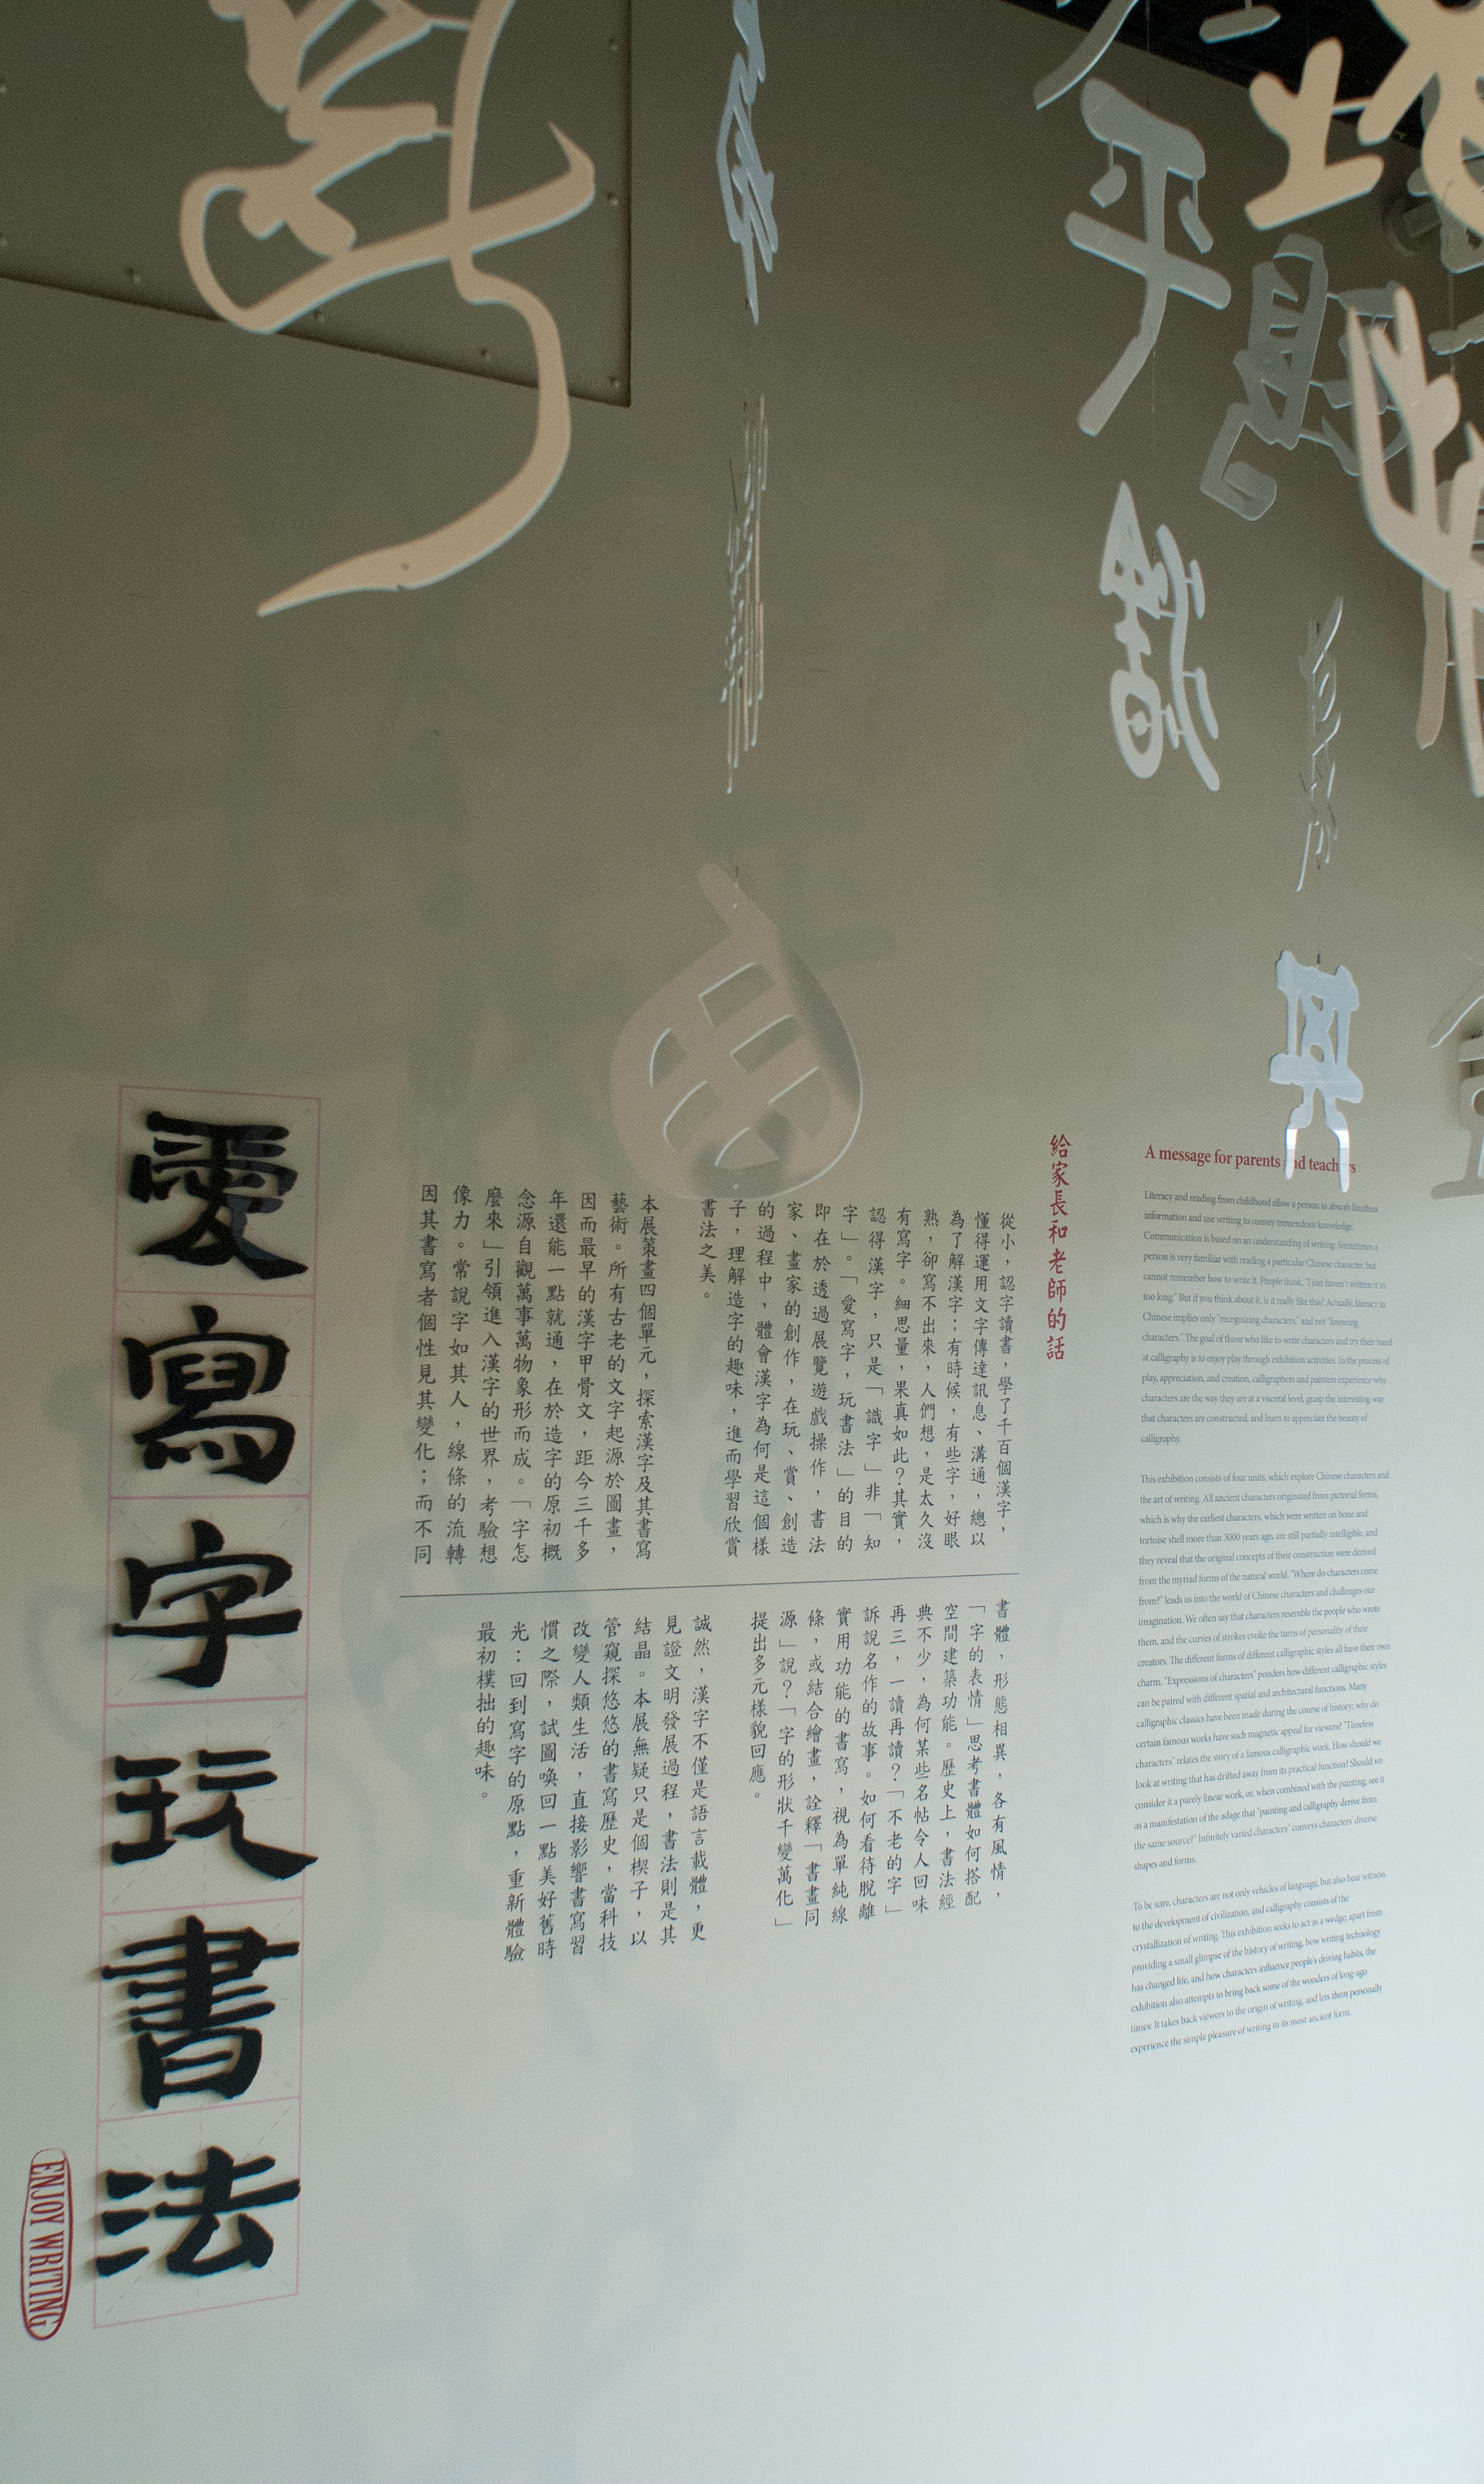 愛寫字玩書法
ENJOY WRITING
給家長和老師的話
從小，認字讀書，學了千百個漢字，
懂得運用文字傳達訊息、溝通，總以
為了解漢字；有時候，有些字，好眼
熟，卻寫不出來，人們想，是太久沒
有寫字。細思量，果真如此？其實，
認得漢字，只是「識字」非「知
字」。「愛寫字，玩書法」的目的
即在於透過展覽遊戲操作，書法
家、畫家的創作，在玩、賞、創造
的過程中，體會漢字為何是這個樣
子，理解造字的趣味，進而學習欣賞
書法之美。
本展策畫四個單元，探索漢字及其書寫
藝術。所有古老的文字起源於圖畫，
因而最早的漢字甲骨文，距今三千多
年還能一點就通，在於造字的原初概
念源自觀萬事萬物象形而成。「字怎
麼來」引領進入漢字的世界，考驗想
像力。常說字如其人，線條的流轉
因其書寫者個性見其變化；而不同
書體，形態相異，各有風情，
「字的表情」思考書體如何搭配
空間建築功能。歷史上，書法經
典不少，為何某些名帖令人回味
再三，一讀再讀？「不老的字」
訴說名作的故事。如何看待脫離
實用功能的書寫，視為單純線
條，或結合繪畫，詮釋「書畫同
源」說？「字的形狀千變萬化」
提出多元樣貌回應。
誠然，漢字不僅是語言載體，更
見證文明發展過程，書法則是其
結晶。本展無疑只是個楔子，以
管窺探悠悠的書寫歷史，當科技
改變人類生活，直接影響書寫習
慣之際，試圖喚回一點美好舊時
光：回到寫字的原點，重新體驗
最初樸拙的趣味。
A message for parents and teachers
Literacy and reading from childhood allow a person to absorb limitless
information and use writing to convey tremendous knowledge.
Communication is based on an understanding of writing. Sometimes a
person is very familiar with reading a particular Chinese character, but
cannot remember how to write it. People think, "I just haven't written it in
too long." But if you think about it, is it really like this? Actually, literacy in
Chinese implies only "recognizing characters," and not "knowing
characters." The goal of those who like to write characters and try their hand
at calligraphy is to enjoy play through exhibition activities. In the process of
play, appreciation, and creation, calligraphers and painters experience why
characters are the way they are at a visceral level, grasp the interesting way
that characters are constructed, and learn to appreciate the beauty of
calligraphy.
This exhibition consists of four units, which explore Chinese characters and
the art of writing. All ancient characters originated from pictorial forms,
which is why the earliest characters, which were written on bone and
tortoise shell more than 3000 years ago, are still partially intelligible, and
they reveal that the original concepts of their construction were derived
from the myriad forms of the natural world. "Where do characters come
from?" leads us into the world of Chinese characters and challenges our
imagination. We often say that characters resemble the people who wrote
them, and the curves of strokes evoke the turns of personality of their
creators. The different forms of different calligraphic styles all have their own
charm. "Expressions of characters" ponders how different calligraphic styles
can be paired with different spatial and architectural functions. Many
calligraphic classics have been made during the course of history; why do
certain famous works have such magnetic appeal for viewers? "Timeless
characters" relates the story of a famous calligraphic work. How should we
look at writing that has drifted away from its practical function? Should we
consider it a purely linear work, or, when combined with the painting, see it
as a manifestation of the adage that "painting and calligraphy derive from
the same source?" Infinitely varied characters" conveys characters' diverse
shapes and forms.
To be sure, characters are not only vehicles of language, but also bear witness
to the development of civilization, and calligraphy consists of the
crystallization of writing. This exhibition seeks to act as a wedge, apart from
providing a small glimpse of the history of writing, how writing technology
has changed life, and how characters influence people's driving habits, the
exhibition also attempts to bring back some of the wonders of long-ago
times: It takes back viewers to the origin of writing, and lets them personally
experience the simple pleasure of writing in its most ancient form.
平